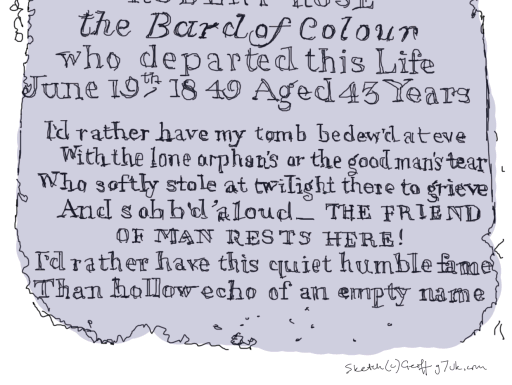 ROBERT ROSE
the Bard of Colour
who departed this Life
June 19th 1849 Aged 43 Years
I'd rather have my tomb bedew'd at eve
With the lone orphan's or the good man's tear
Who softly stole at twilight there to grieve
And sobb'd aloud_ THE FRIEND
OF MAN RESTS HERE!
I'd rather have this quiet humble fame
Than hollow echo of an empty name
Sketch (c) Geoff g7uk.com